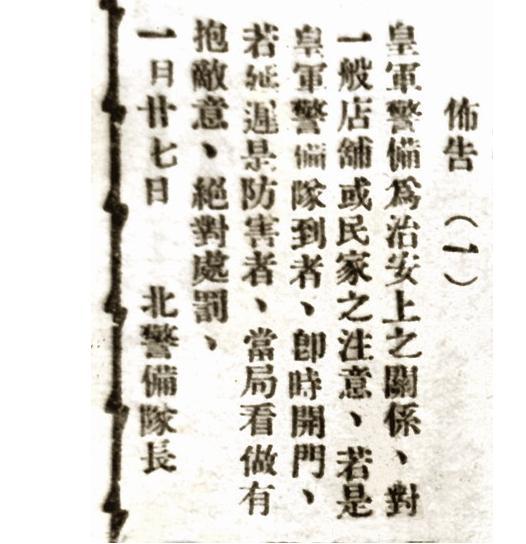 佈告（一）
皇軍警備爲治安上之關係、對
一般店舖或民家之注意、若是
皇軍警備隊到者、卽時開門、
若延遲是防害者、當局看做有
抱敵意、絕對處罰、
一月廿七日　　北警備隊長